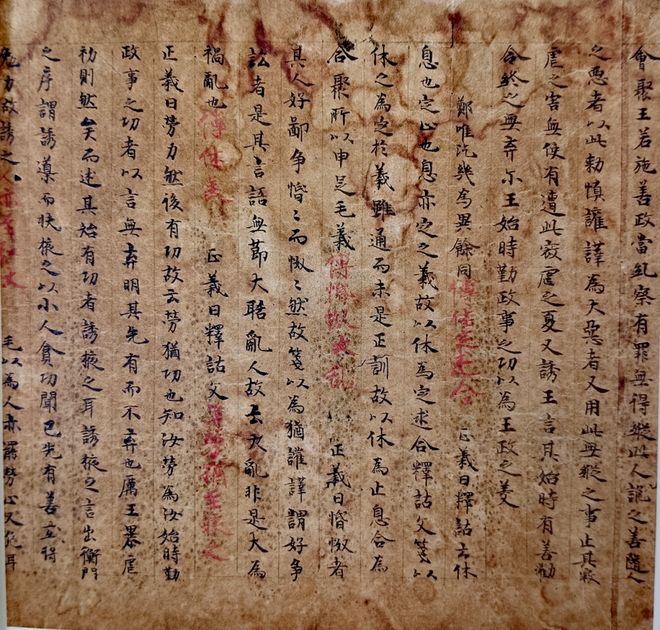 會聚王若施善政當糺察有罪無得縱此人之善隨人
之惡者以此勅慎讙譁為大惡者又用此無縱之事止其寇
虐之害無使有遭此寇虐之憂又誘王言其始時有善勸
令終之無弃尓王始時勤政事之功以為王政之美
鄭唯汔幾為異餘同 傳休定逑合 正義曰釋詁云休
息也定止也息亦定之義故以休為定求合釋詁文箋以
休之為定於義雖通而未是正訓故以休為止息合為
合聚所以申足毛義 傳惛怓大亂 正義曰惛怓者
其人好鄙爭惛〻而怓〻然故箋以為猶讙譁謂好爭
訟者是其言語無節大聒亂人故云大亂非是大為
禍亂也 傳休美 正義曰釋詁文 箋勞猶至掖之
正義曰勞力然後有功故云勞猶功也知汝勞為汝始時勤
政事之功者以言無弃明其先有而不弃也厲王暴虐
初則然矣而述其始有功者誘掖之耳誘掖之言出衡門
之序謂誘導而扶掖之以小人貪功聞已先有善立得
勉力故誘之 毛以為人亦罷勞止又危耳